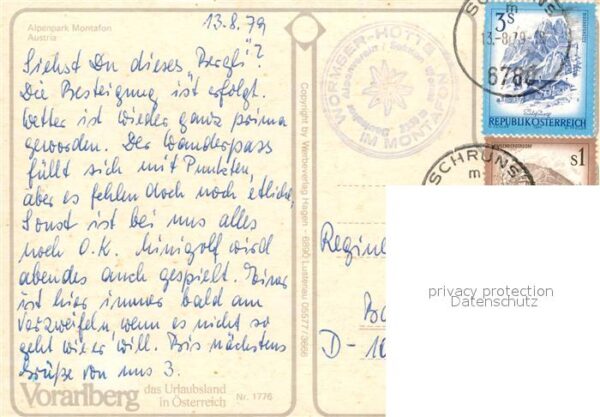 Alpenpark Montafon
Austria
13.8.79
Siehst Du dieses "Bergli"?
Die Besteigung ist erfolgt.
Wetter ist wieder ganz prima
geworden. Der Wanderpass
füllt sich mit Punkten,
aber es fehlen doch noch etliche,
Sonst ist bei uns alles
noch O.K. Minigolf wird
abends auch gespielt. Einer
ist hier immer bald am
Verzweifeln, wenn es nicht so
geht wie er will. Bis nächstens
Grüße von uns 3.
Vorarlberg das Urlaubsland
in Österreich
Nr. 1776
Copyright by Werbeverlag Hagen - 6890 Lustenau 05577/3666
WORMSER-HÜTTE
Alpenverein / Sektion Worms
IM MONTAFON
SCHRUNS
m
13.-8.79-18
6780
3s
REPUBLIK ÖSTERREICH
SCHRUNS
m
s1
D-10
privacy protection
Datenschutz